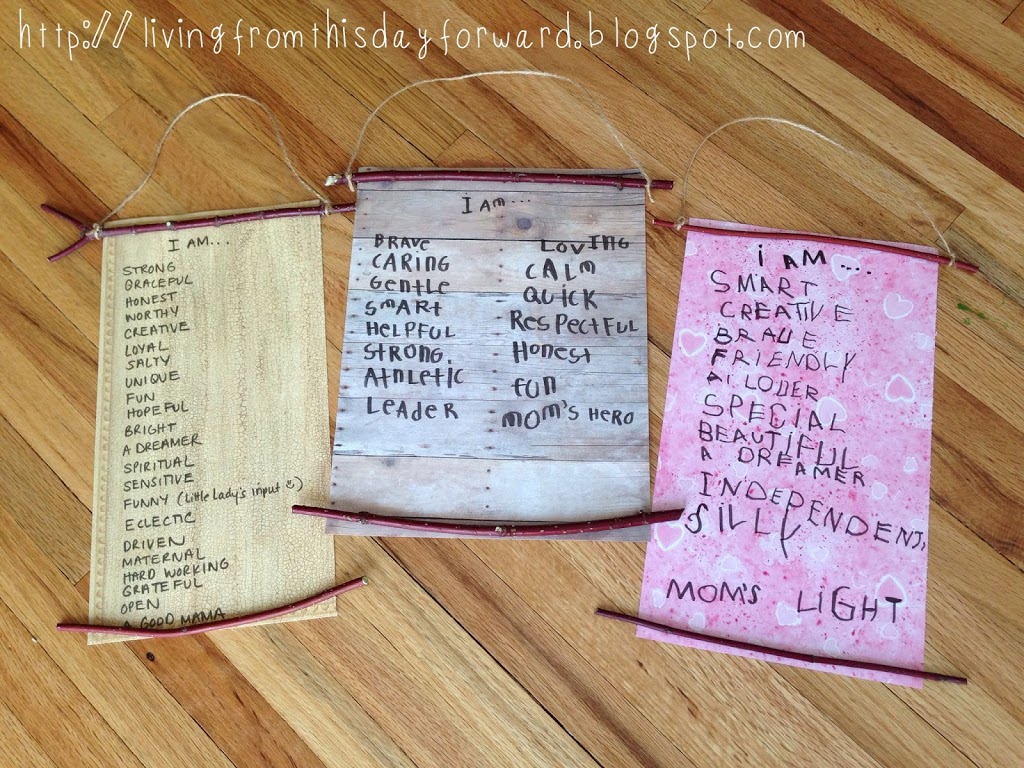 http://livingfromthisdayforward.blogspot.com
I AM...
STRONG
GRACEFUL
HONEST
WORTHY
CREATIVE
LOYAL
SALTY
UNIQUE
FUN
HOPEFUL
BRIGHT
A DREAMER
SPIRITUAL
SENSITIVE
FUNNY (little lady's input ☺)
ECLECTIC
DRIVEN
MATERNAL
HARD WORKING
GRATEFUL
OPEN
A GOOD MAMA
I Am...
BRAVe
CARinG
Gentle
SmART
HeLPFUL
STRonG.
AthLetic
LeADeR
LOVING
CALm
QUICK
ResPectFUL
Honest
FUn
mOm's HeRO
i AM....
SMART
CREATIVE
BRAVE
FRIENDLY
LODER
SPECIAL
BEAUTIFUL
A DREAMER
INDEPENDENT,
SILLY
MOM'S LiGHT